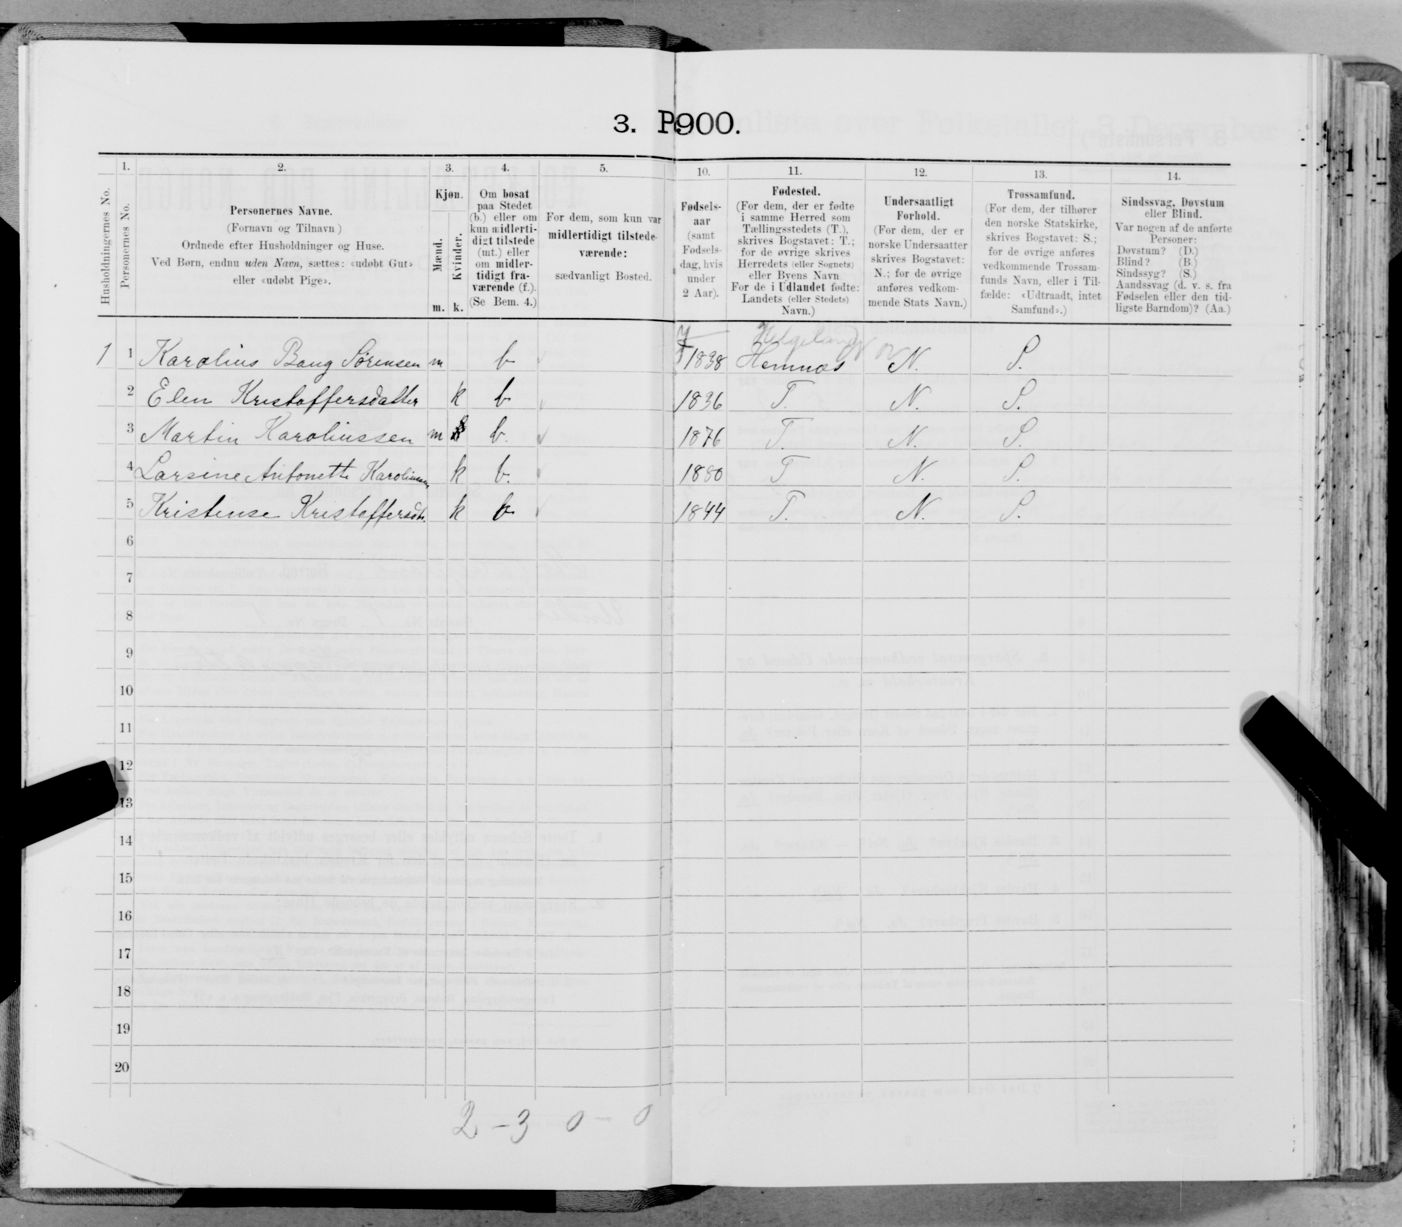 3. P 900.
1. 2. 3. 4. 5. 10. 11. 12. 13. 14.
Husholdningernes No.
Personernes No.
Personernes Navne.
(Fornavn og Tilnavn)
Ordnede efter Husholdninger og Huse.
Ved Børn, endnu uden Navn, sættes: «udøbt Gut»
eller «udøbt Pige».
Kjøn.
Mænd.
Kvinder.
m. k.
Om bosat
paa Stedet
(b.) eller om
kun midlerti-
digt tilstede
(mt.) eller
om midler-
tidigt fra-
værende (f.).
(Se Bem. 4.)
For dem, som kun var
midlertidigt tilstede-
værende:
sædvanligt Bosted.
Fødsels-
aar
(samt
Fødsels-
dag, hvis
under
2 Aar).
Fødested.
(For dem, der er fødte
i samme Herred som
Tællingsstedets (T.),
skrives Bogstavet: T.;
for de øvrige skrives
Herredets (eller Sognets)
eller Byens Navn.
For de i Udlandet fødte:
Landets (eller Stedets)
Navn.)
Undersaatligt
Forhold.
(For dem, der er
norske Undersaatter
skrives Bogstavet:
N.; for de øvrige
anføres vedkom-
mende Stats Navn.)
Trossamfund.
(For dem, der tilhører
den norske Statskirke,
skrives Bogstavet: S.;
for de øvrige anføres
vedkommende Trossam-
funds Navn, eller i Til-
fælde: «Udtraadt, intet
Samfund».)
Sindssvag, Døvstum
eller Blind.
Var nogen af de anførte
Personer:
Døvstum? (D.)
Blind? (B.)
Sindssyg? (S.)
Aandssvag (d. v. s. fra
Fødselen eller den tid-
ligste Barndom)? (Aa.)
1 1 Karolius Bang Sørensen m b 1838 Hemnæs N. S.
2 Elen Kristoffersdatter k b 1836 T. N. S.
3 Martin Karoliussen m b. 1876 T. N. S.
4 Larsine Antonette k b. 1880 T N. S.
5 Kristense Kristoffersdt. k b 1844 T. N. S.
6
7
8
9
10
11
12
13
14
15
16
17
18
19
20
2 - 3 0 - 0